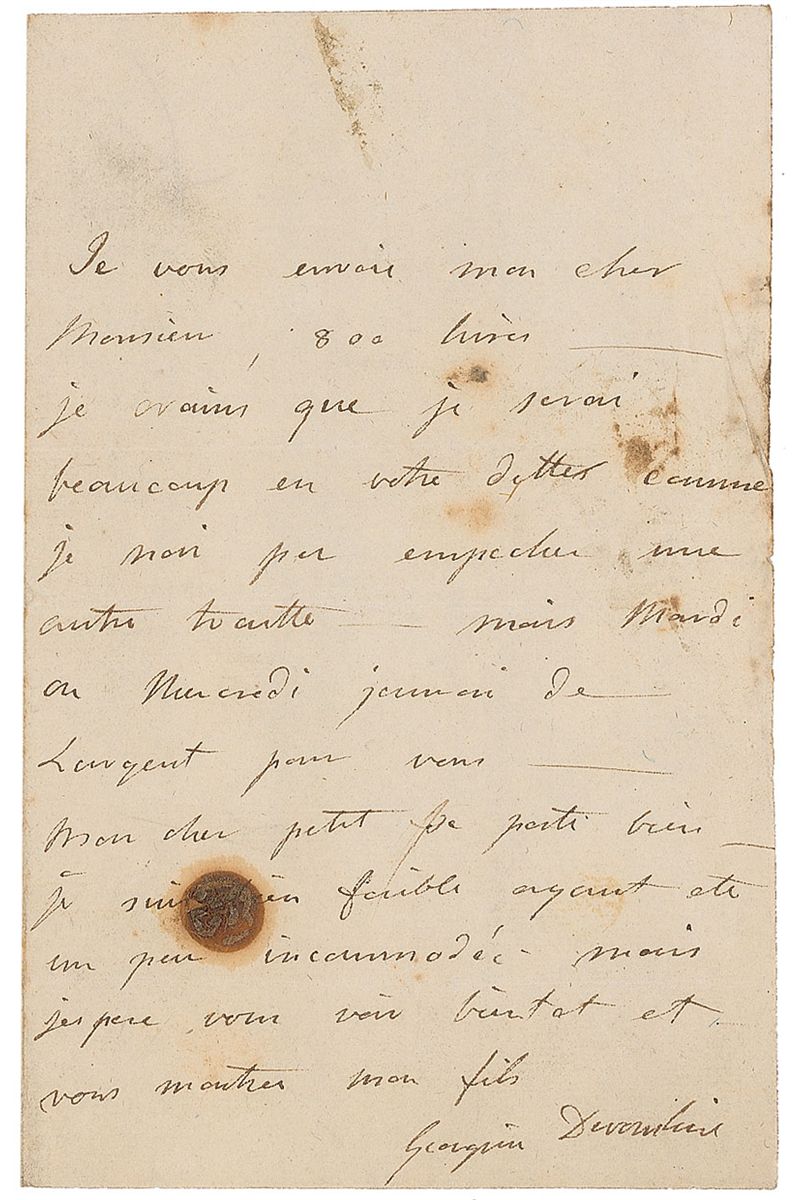 Je vous envoie mon cher
Monsieur, 800 livres —
je crains que je serai
beaucoup en votre dettes comme
je nai pu empecher une
autre traitte — mais Mardi
ou Mercredi jaurai de —
Largent pour vous —
Mon cher petit se porte bien —
je suis bien faible ayant ete
un peu incommodée - mais
jespere vous voir bientot et
vous montrer mon fils
Georgina Devonshire